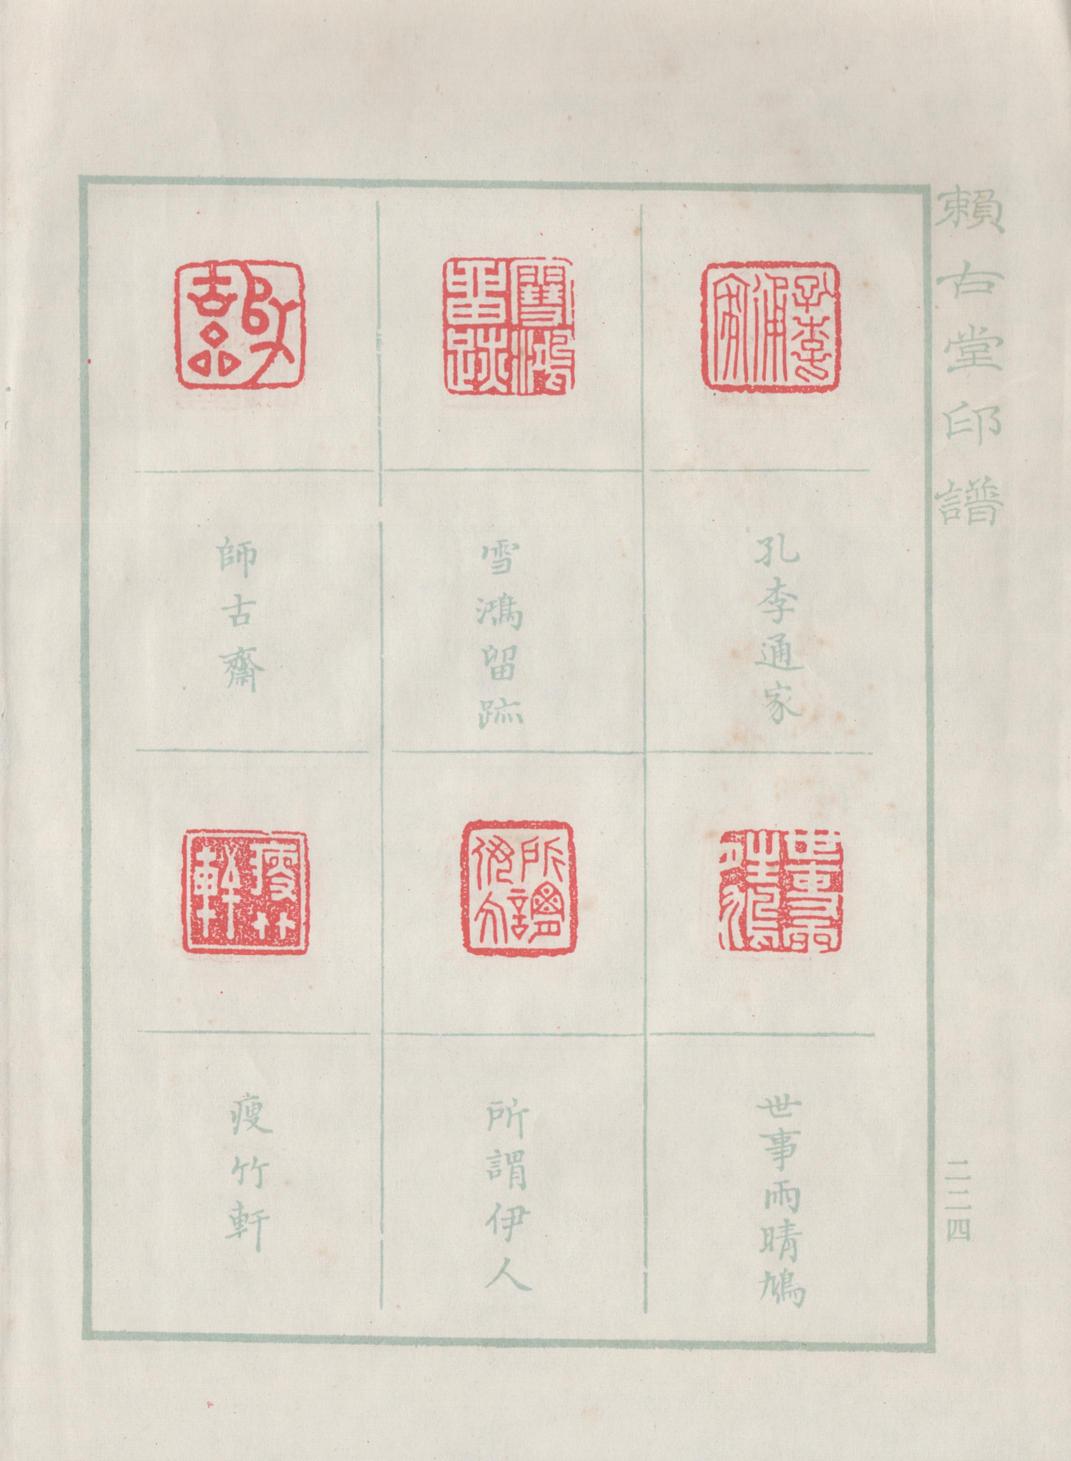 賴古堂印譜
孔李通家
雪鴻留跡
師古齋
世事雨晴鳩
所謂伊人
瘦竹軒
二二四